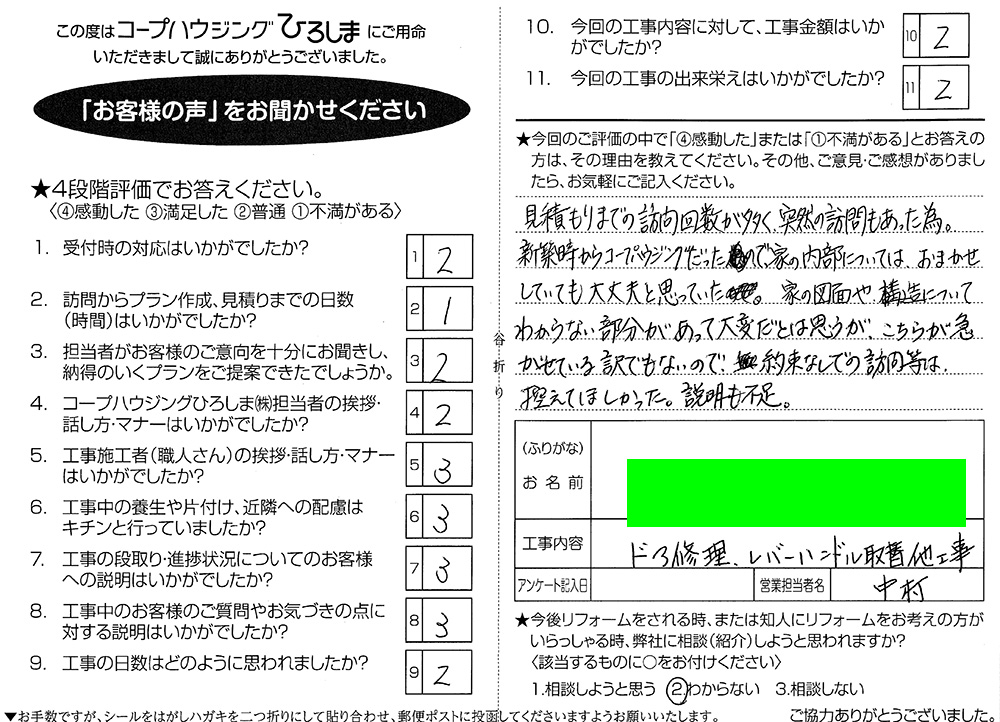 この度はコープハウジングひろしまにご用命
いただきまして誠にありがとうございました。
「お客様の声」をお聞かせください
★4段階評価でお答えください。
〈④感動した ③満足した ②普通 ①不満がある〉
1. 受付時の対応はいかがでしたか? 1 2
2. 訪問からプラン作成、見積りまでの日数
（時間）はいかがでしたか? 2 1
3. 担当者がお客様のご意向を十分にお聞きし、
納得のいくプランをご提案できたでしょうか。 3 2
4. コープハウジングひろしま㈱担当者の挨拶・
話し方・マナーはいかがでしたか? 4 2
5. 工事施工者（職人さん）の挨拶・話し方・マナー
はいかがでしたか? 5 3
6. 工事中の養生や片付け、近隣への配慮は
キチンと行っていましたか? 6 3
7. 工事の段取り・進捗状況についてのお客様
への説明はいかがでしたか? 7 3
8. 工事中のお客様のご質問やお気づきの点に
対する説明はいかがでしたか? 8 3
9. 工事の日数はどのように思われましたか? 9 2
▼お手数ですが、シールをはがしハガキを二つ折りにして貼り合わせ、郵便ポストに投函してくださいますようお願いいたします。
谷折り
10. 今回の工事内容に対して、工事金額はいか
がでしたか? 10 2
11. 今回の工事の出来栄えはいかがでしたか? 11 2
★今回のご評価の中で「④感動した」または「①不満がある」とお答えの
方は、その理由を教えてください。その他、ご意見・ご感想がありまし
たら、お気軽にご記入ください。
見積もりまでの訪問回数が多く、突然の訪問もあった為。
新築時からコープハウジングだったので、家の内部については、おまかせ
していても大丈夫と思っていた。家の図面や構造について
わからない部分があって大変だとは思うが、こちらが急
がせている訳でもないので、約束なしでの訪問等は、
控えてほしかった。説明も不足。
（ふりがな）
お名前
工事内容 ドア修理、レバーハンドル取替他工事
アンケート記入日 営業担当者名 中村
★今後リフォームをされる時、または知人にリフォームをお考えの方が
いらっしゃる時、弊社に相談（紹介）しようと思われますか?
〈該当するものに○をお付けください〉
1.相談しようと思う ②.わからない 3.相談しない
ご協力ありがとうございました。